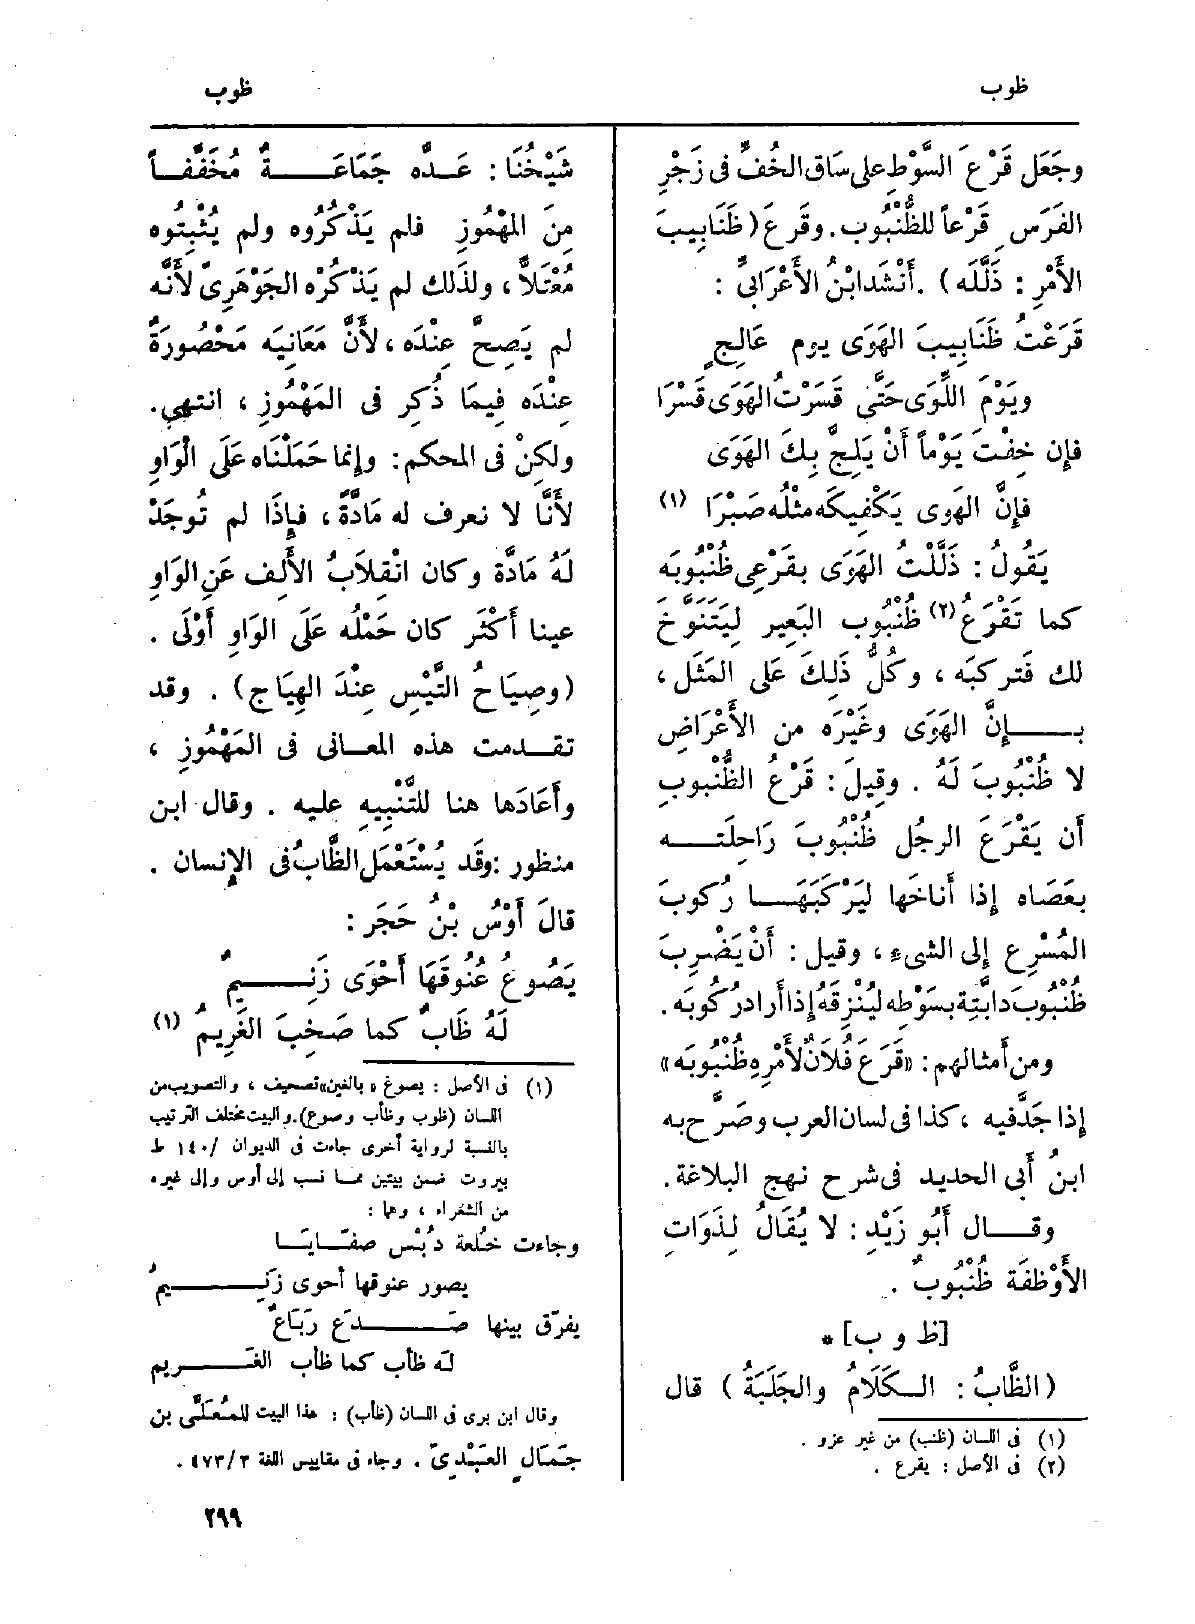 ظوب
ظوب
وجَعَل قَرْعَ السَّوْطِ على سَاقِ الخُفِّ فى زَجْرِ
الفَرَسِ قَرْعاً للظُّنْبُوب. وقَرعَ (ظَنَابِيبَ
الأَمْرِ : ذَلَّلَه) . أَنْشَد ابْنُ الأَعْرَابىِّ :
قَرَعْتُ ظَنَابِيبَ الهَوَى يوم عَالِجٍ
ويَوْمَ اللِّوَى حَتَّى قَسَرْتُ الهَوَى قَسْرَا
فإن خِفْتَ يَوْماً أَنْ يَلِجَّ بِكَ الهَوَى
فإِنَّ الهَوى يَكْفِيكَه مثْلُه صَبْرَا (١)
يَقُولُ : ذَلَّلْتُ الهَوَى بقَرْعِى ظُنْبُوبَه
كما تَقْرَعُ (٢) ظُنْبُوب البَعِير لِيَتَنَوَّخَ
لك فَتركبَه ، وكُلُّ ذَلِكَ عَلى المَثَل ،
بـــإنَّ الهَوَى وغَيْرَه من الأَعْرَاضِ
لا ظُنْبُوبَ لَهُ . وقِيلَ : قَرْعُ الظُّنْبوبِ
أَن يَقْرَعَ الرجُل ظُنْبُوبَ رَاحِلَتــه
بعَصَاه إِذا أَناخَها ليَرْكَبَهَــا رُكوبَ
المُسْرِع إلى الشىء ، وقيل : أَنْ يَضْرِبَ
ظُنْبُوبَ دابَّتِه بسَوْطِه ليُنْزِقَهُ إذا أَراد رُكُوبَه .
ومن أمثالهم : «قَرَعَ فُلَانٌ لأَمْرِه ظُنْبُوبَه»
إذا جَدَّ فيه ، كذا فى لسان العرب وصَرَّح به
ابنُ أَبى الحديد فى شرح نهج البلاغة .
وقــال أَبُو زَيْدٍ : لا يُقَالُ لِذَوَاتِ
الأَوْظِفَة ظُنْبُوبٌ .
[ظ و ب] *
(الظَّابُ : الــكَلَامُ والجَلَبَةُ) قال
(١) فى اللسان (ظنب) من غير عزو .
(٢) فى الأصل : يقرع .
شَيْخُنَا : عَـدَّه جَمَاعَــةٌ مُخَفَّفــاً
مِنَ المَهْمُوزِ فلم يَذْكُرُوه ولم يُثْبِتُوه
مُعْتَلاًّ ، ولذَلك لم يَذْكُرْه الجَوْهَرِىّ لأَنَّه
لم يَصِحَّ عِنْدَه ، لأَنَّ مَعَانِيَه مَحْصُورَةٌ
عِنْدَه فِيمَا ذُكِر فى المَهْمُوزِ ، انتهى.
ولكِنْ فى المحكم : وإنما حَمَلْنَاه عَلَى الْوَاوِ
لأَنَّا لا نعرف له مَادَّةً ، فإِذَا لم تُوجَدْ
لَهُ مَادَّة وكان انْقِلَابُ الأَلِف عَنِ الوَاوِ
عينا أَكْثَر كان حَمْلُه عَلَى الوَاوِ أَوْلَى .
(وصِيَاحُ التَّيْسِ عِنْدَ الهِيَاج) . وقد
تقــدمت هذه المعــانى فى المَهْمُوزِ ،
وأَعَادَها هنا للتَّنْبِيهِ عليه . وقال ابن
منظور : وقَد يُسْتَعْمَل الظَّابُ فى الإنسان .
قالَ أَوْسُ بْنُ حَجَرٍ :
يَصُوعُ عُنُوقَهَا أَحْوَى زَنِــيمٌ
لَهُ ظَابٌ كما صَخِبَ الغَرِيمُ (١)
(١) فى الأصل : يصوغ « بالغين » تصحيف ، والتصويب من
اللسان (ظوب وظأب وصوع). والبيت مختلف الترتيب
بالنسبة لرواية أخرى جاءت فى الديوان /١٤٠ ط
بيروت ضمن بيتين ممـا نسب إلى أوس وإلى غيره
من الشعراء ، وهما :
وجاءت خُلعة دُبْس صفَـايَـا
يصور عنوقها أحوى زَنِــيمُ
يفرّق بينها صَــدَع رَبَاعٌ
لـه ظأب كما ظأب الغَــريم
وقال ابن برى فى اللسان (ظأب) : هذا البيت للمُعَلَّى بن
جَمَالٍ العَبْدِىّ . وجاء فى مقاييس اللغة ٤٧٣/٣ .
٢٩٩